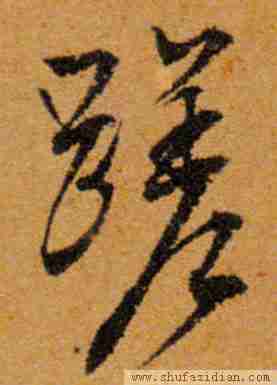 蹉
www.shufazidian.com